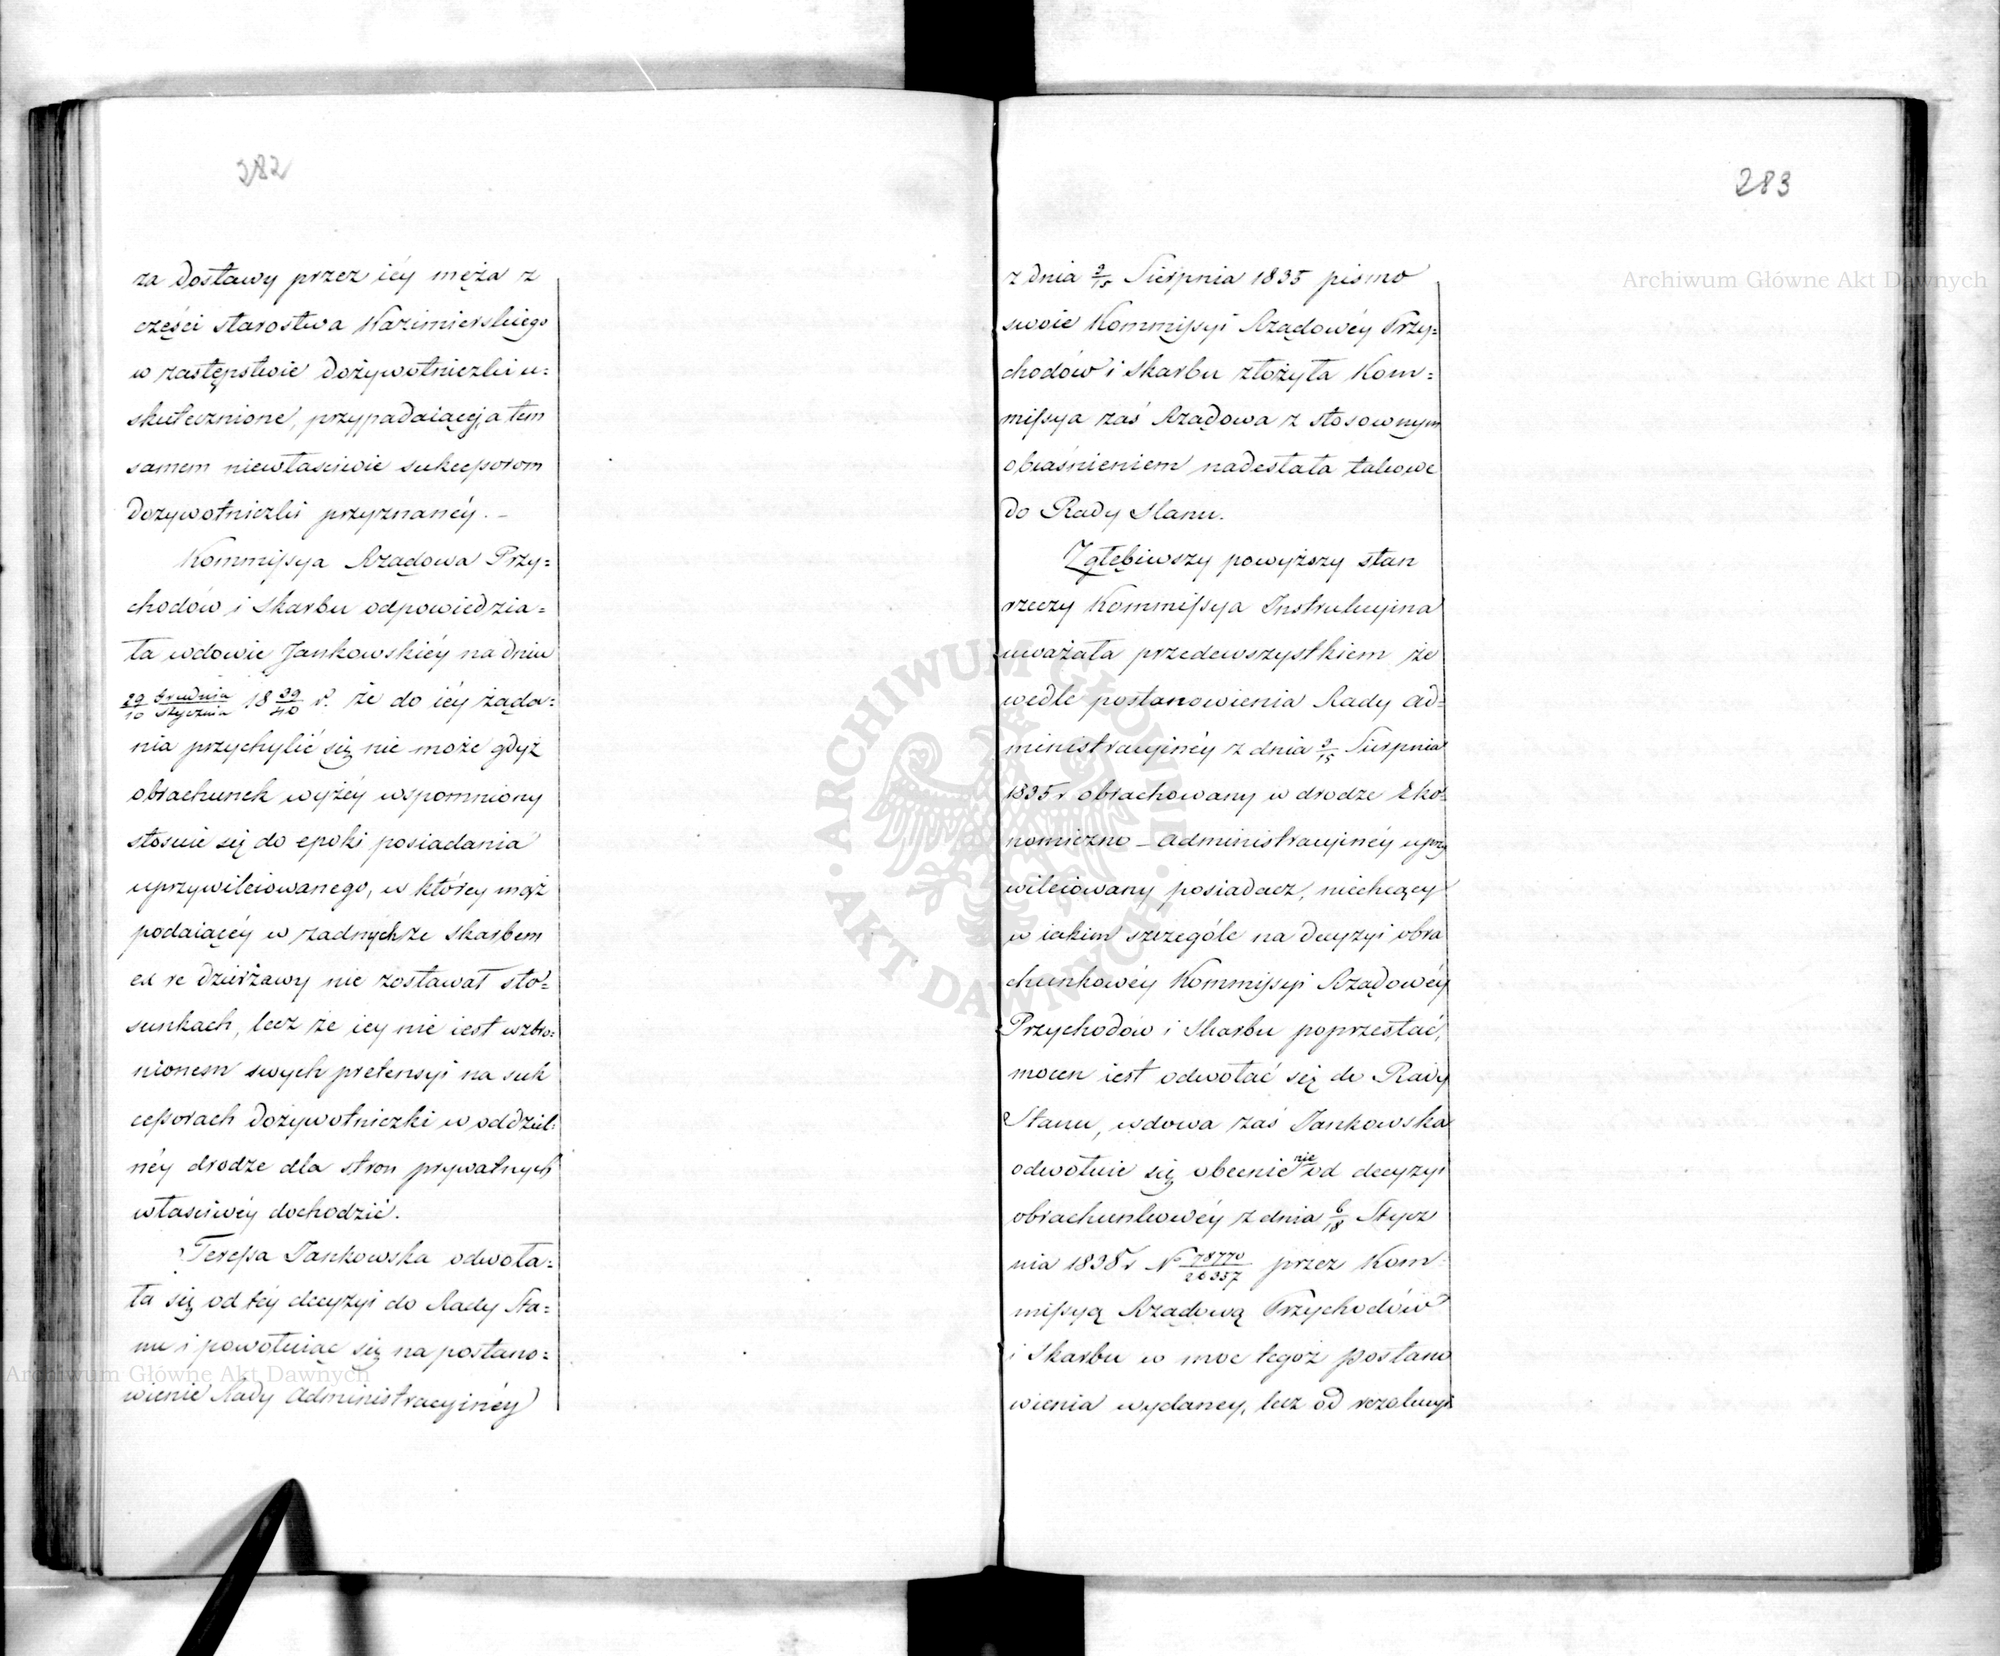 282
za dostawy przez iéy męża z
części starostwa Kazimierskiego
w zastępstwie dożywotniczki u=
skutecznione, przypadaiącéj, a tem
samem niewłaściwie sukcessorom
dożywotniczki przyznanéy. –
Kommissya Rządowa Przy=
chodów i Skarbu odpowiedzia=
ła wdowie Jankowskiéy na dniu
29/10 Grudnia/Stycznia 18 39/40 r. że do iéy żąda=
nia przychylić się nie może gdyż
obrachunek wyżéy wspomniony
stosuie się do epoki posiadania
uprzywileiowanego, w któréy mąż
podaiącéy w żadnych ze Skarbem
ex re dzierżawy nie zostawał sto=
sunkach, lecz że iey nie iest wzbro=
nionem swych pretensyi na suk
cessorach dożywotniczki w oddziel=
néy drodze dla stron prywatnych
właściwéy dochodzić.
Teressa Jankowska odwoła=
ła się od téy decyzyi do Rady Sta=
nu i powołuiąc się na postano=
wienie Rady Administracyinéy
283
z dnia 3/15 Sierpnia 1835 pismo
swoie Kommissyi Rządowéy Przy=
chodów i Skarbu złożyła Kom=
missya zaś Rządowa z stosownym
obiaśnieniem nadesłała takowe
do Rady Stanu.
Zgłębiwszy powyższy stan
rzeczy Kommissya Instrukcyina
uważała przedewszystkiem że
wedle postanowienia Rady Ad=
ministracyinéy z dnia 3/15 Sierpnia
1835 r obrachowany w drodze Eko=
nomiczno – Administracyinéy uprzy
wileiowany posiadacz, niechcący
w iakim szczególe na decyzyi obra
chunkowéy Kommissyi Rządowéy
Przychodów i Skarbu poprzestać,
mocen iest odwołać się do Rady
Stanu, wdowa zaś Jankowska
odwołuie się obecnie nie od decyzyi
obrachunkowéy z dnia 6/18 Stycz
nia 1838 r N 78770/26357 przez Kom
missyą Rządową Przychodów
i Skarbu w moc tegoż postano
wienia wydaney, lecz od rezolucyi
Archiwum Główne Akt Dawnych
Archiwum Główne Akt Dawnych
ARCHIWUM GŁÓWNE AKT DAWNYCH